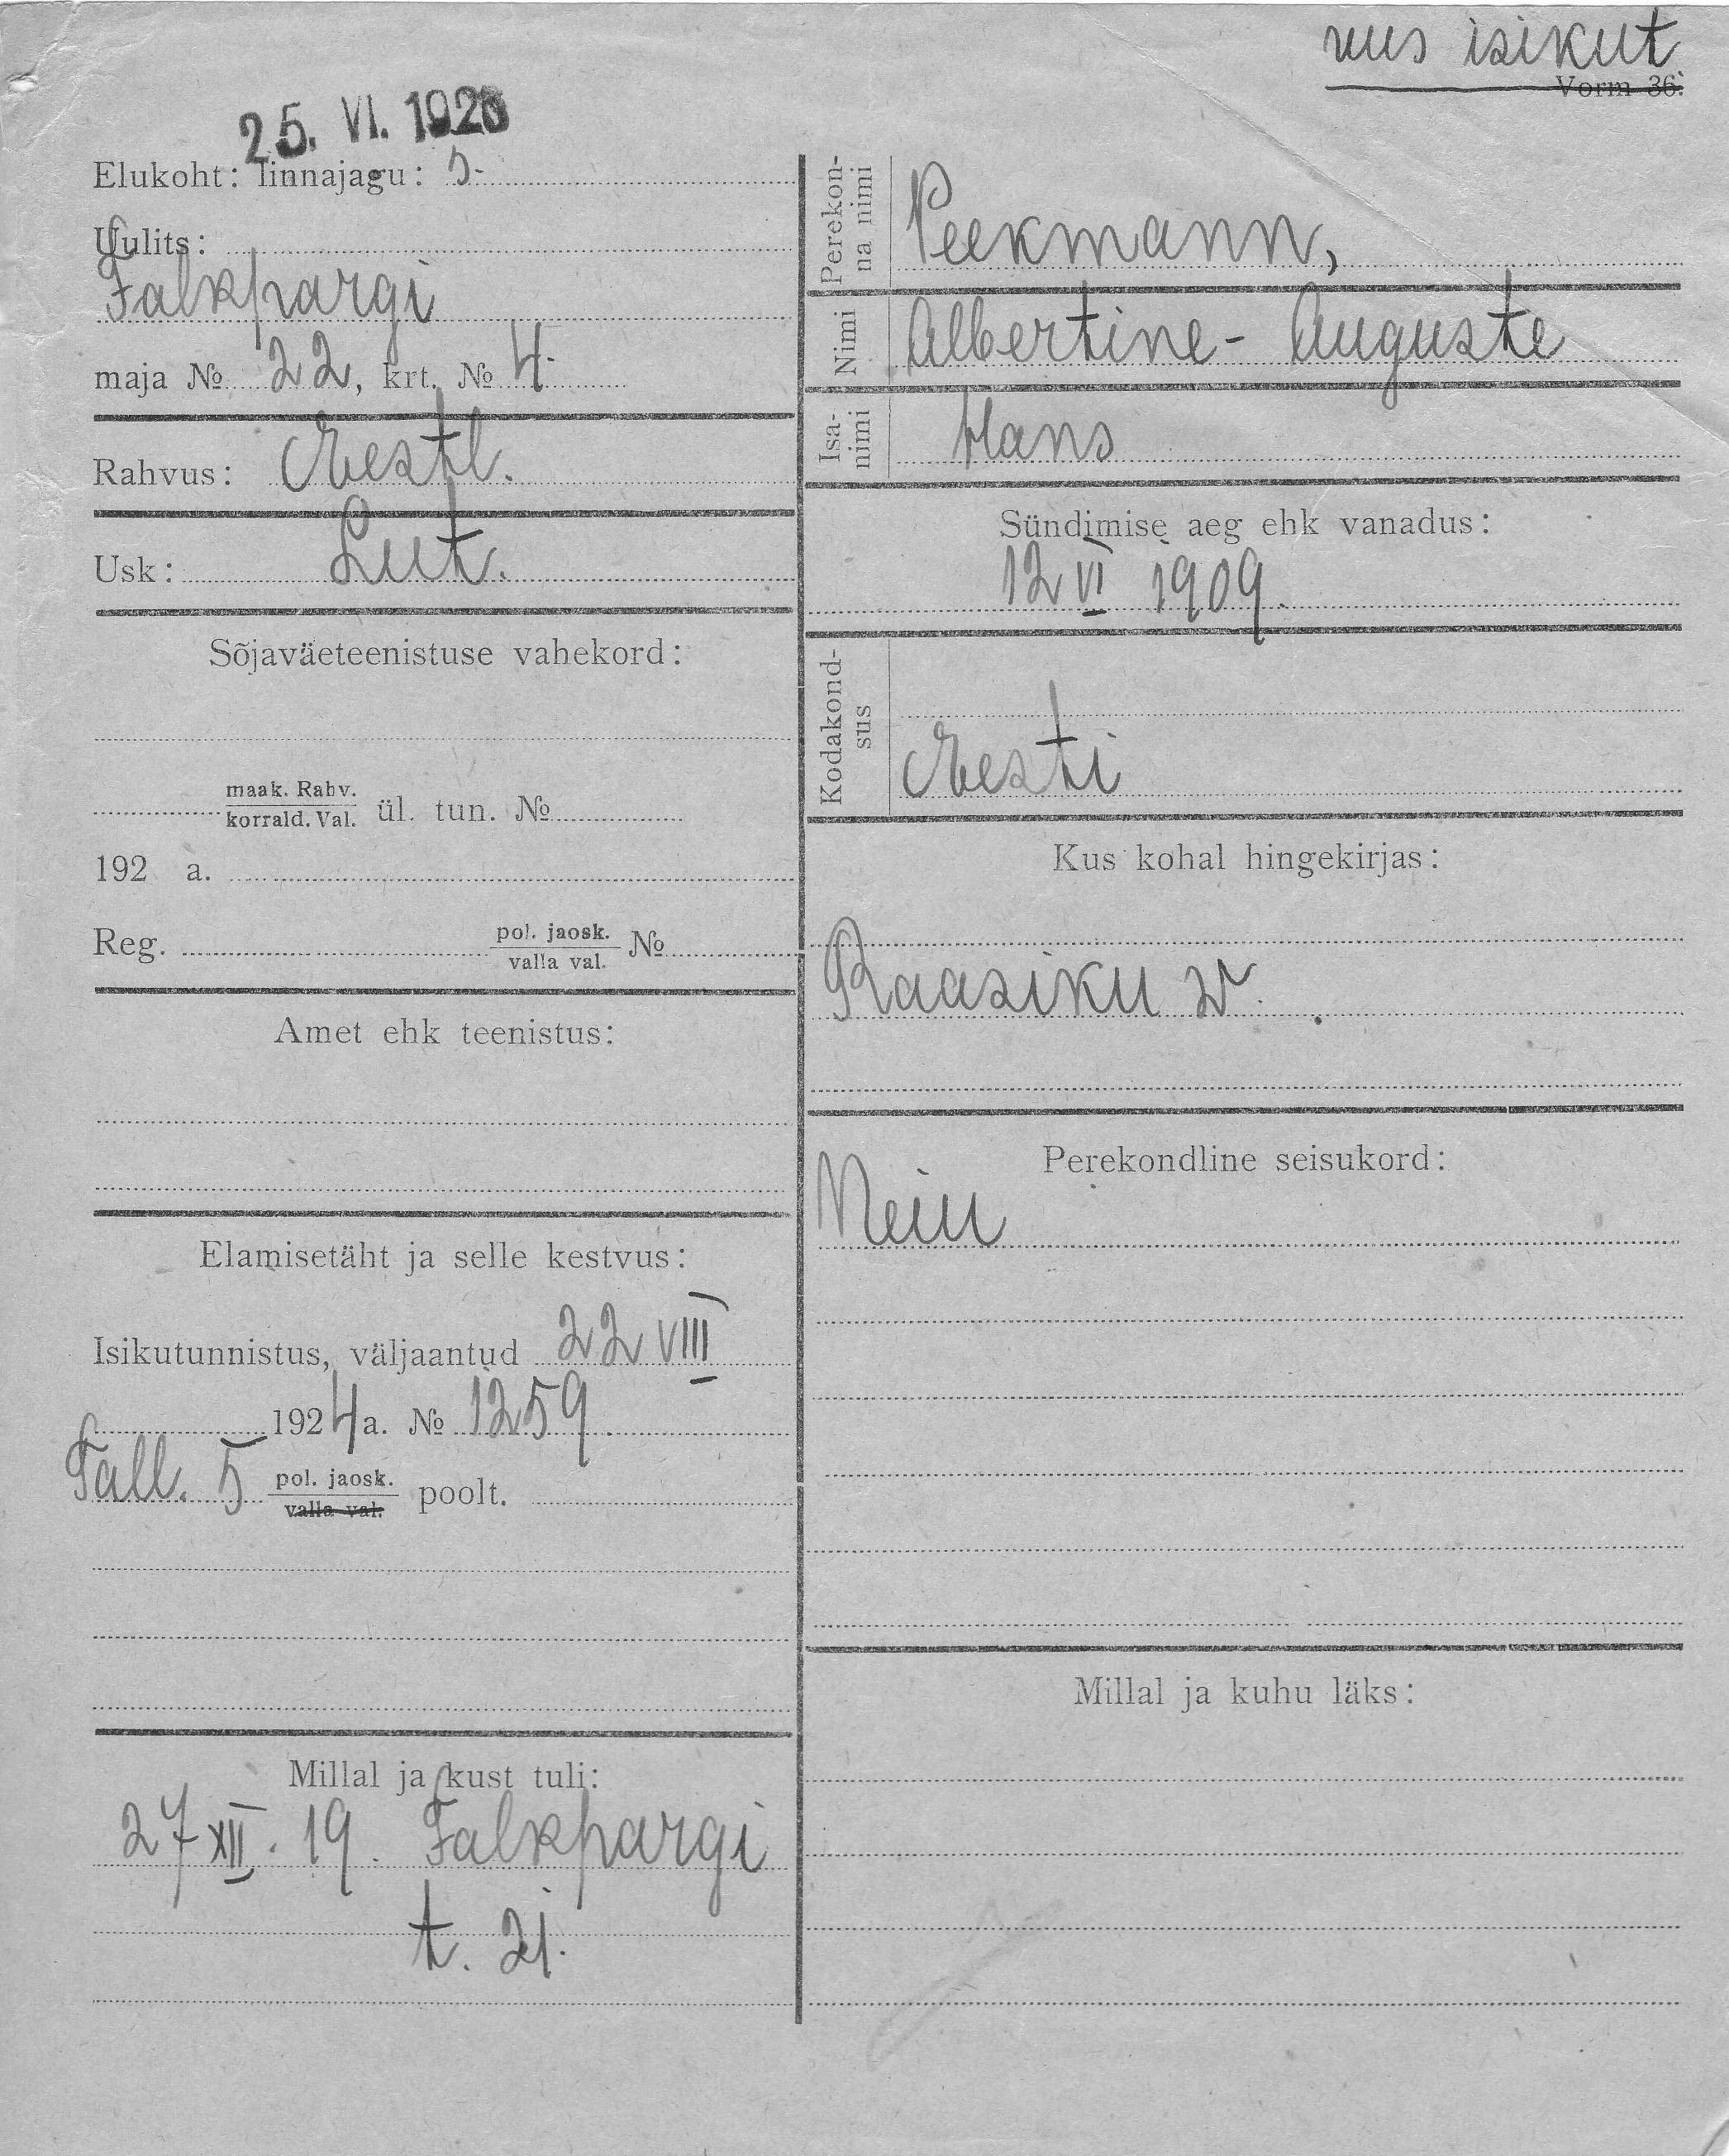 uus isikut
Vorm 36.
25. VI. 1926
Elukoht: linnajagu: 5.
Uulits:
Falkpargi
maja № 22, krt. № 4.
Rahvus: Eestl.
Usk: Lut.
Sõjaväeteenistuse vahekord:
maak. Rahv.
korrald. Val. ül. tun. №
192 a.
Reg. pol. jaosk. №
valla val.
Amet ehk teenistus:
Elamisetäht ja selle kestvus:
Isikutunnistus, väljaantud 22 VIII
1924 a. № 1259.
Tall. 5 pol. jaosk. poolt.
valla val.
Millal ja kust tuli:
27 XII. 19. Falkpargi
t. 21.
Perekon-
na nimi
Peekmann,
Nimi Albertine-Auguste
Isa-
nimi
Hans
Sündimise aeg ehk vanadus:
12 VI 1909.
Kodakond-
sus
Eesti
Kus kohal hingekirjas:
Raasiku w.
Perekondline seisukord:
Neiu
Millal ja kuhu läks: